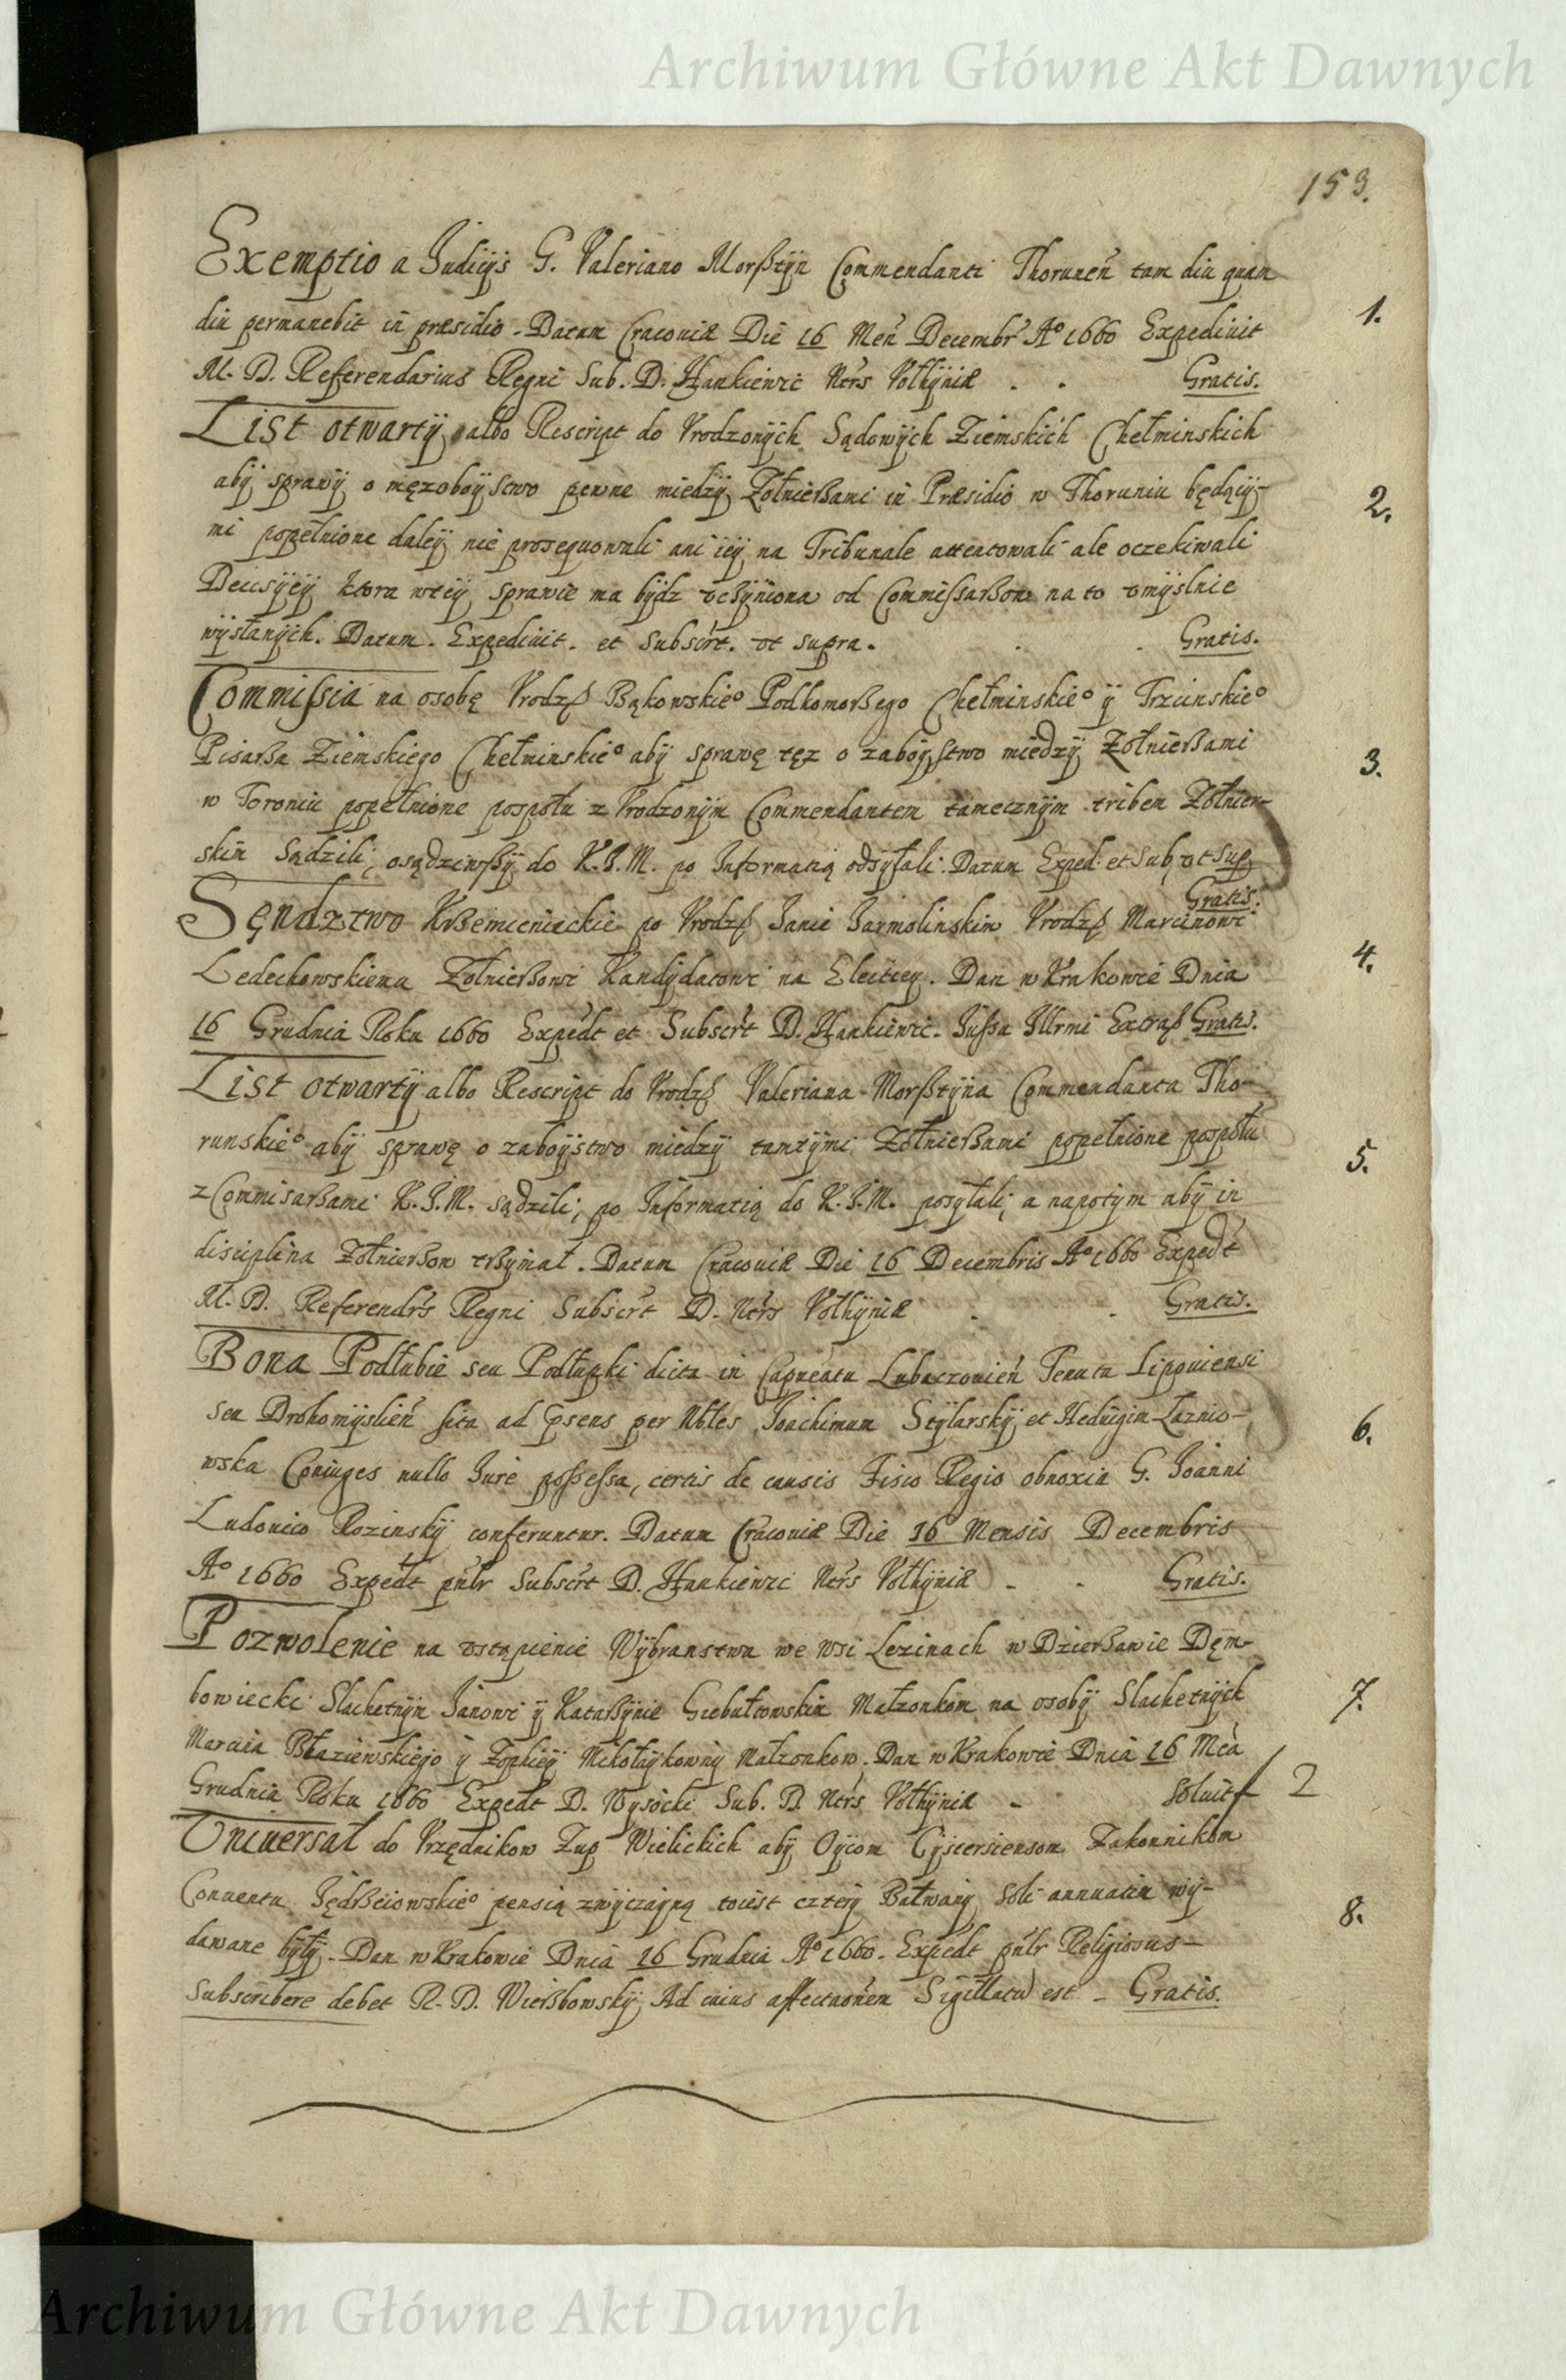 Archiwum Główne Akt Dawnych
153.
Exemptio a Iudicijs G. Valeriano Morßtÿn Commendanti Thorunen̄ tam diu quam
diu permanebit in præsidio. Datum Cracoviæ Die 16 Men̄ Decembr̄ Aº 1660 Expedivit
1.
M. D. Referendarius Regni Sub. D. Hankiewic Nẽrs Vołhÿniæ - - Gratis.
List otwartÿ albo Rescript do Vrodzonÿch Sądowÿch Ziemskich Chełminskich
abÿ sprawÿ o męzoboÿstwo pewne miedzÿ Zołnierßami in Præsidio w Thoruniu będącÿ-
2.
mi popełnione daleÿ nie prosequowali ani ieÿ na Tribunale attentowali ale oczekiwali
Decisÿeÿ ktora wteÿ sprawie ma bÿdz vcßÿniona od Commißarßow na to vmÿslnie
wÿsłanÿch. Datum. Expedivit. et Subscrt. vt supra. Gratis.
Commißia na osobę Vrodzß Bąkowskieº Podkomorßego Chełminskieº ÿ Trzcinskieº
Pisarßa Ziemskiego Chełminskieº abÿ sprawę tęz o zaboÿstwo miedzÿ Zołnierßami
3.
w Toroniu popełnione pospołu z Vrodzonÿm Commendantem tamecznÿm tribem Zołnier-
skim Sądzili, osądziwßÿ do K.J.M. po Informatią odsÿłali. Datum Exped. et Sub. vt Sup
Gratis.
Sęndztwo Krßemienieckie po Vrodzß Janie Jarmolinskim Vrodzß Marcinowi
Ledechowskiemu Zołnierßowi Kandÿdatowi na Electieÿ. Dan w Krakowie Dnia
4.
16 Grudnia Roku 1660 Expedt et Subscrt D. Hankiewic. Jußu Illrmi Gratis.
List otwartÿ albo Rescript do Vrodzß Valeriana Morßtÿna Commendanta Tho-
runskieº abÿ sprawę o zaboÿstwo miedzÿ tamtÿmi Zołnierßami popełnione pospołu
5.
z Commisarßami K.J.M. sądzili, po Informatią do K.J.M. posÿłali, a napotÿm abÿ in
disciplina Zołnierßow trßÿmał. Datum Cracoviæ Die 16 Decembris Aº 1660 Expedt
M. D. Referendr̄s Regni Subscrt D. Nẽrs Vołhÿniæ - Gratis.
Bona Podłubie seu Podłupki dicta in Capneatu Lubaczovien̄ Tenuta Lipoviensi
seu Drohomÿslien̄ sita ad p̄sens per Nbłes Joachimum Stÿlarskÿ et Hedvigim Łaznio-
6.
wska Coniuges nullo Jure poßeßa, certis de causis Fisco Regio obnoxia G. Joanni
Ludovico Rozinskÿ conferuntur. Datum Cracoviæ Die 16 Mensis Decembris
Aº 1660 Expedt pnlr Subscrt D. Hankiewic Nẽrs Vołhÿniæ - - Gratis.
Pozwolenie na vstąpienie Wÿbranstwa we Wsi Lezinach w Dzierßawie Dęm-
bowiecki Slachetnÿm Janowi ÿ Katarßÿnie Giebułtowskim Małzonkom na osobÿ Slachetnÿch
7.
Marcina Błaziewskiego ÿ Zophieÿ Mikołaÿkownÿ Małzonkow. Dan w Krakowie Dnia 16 Mca
Grudnia Roku 1660 Expedt D. Wysocki Sub. D. Nẽrs Vołhÿniæ - Solvit f 2
Vniversał do Vrzędnikow Zup Wielickich abÿ Oÿcom Cÿstersiensom Zakonnikom
Conventu Jędrßeiowskieº pensią zwÿczaÿną toiest czterÿ Bałwanÿ Soli annuatim wÿ-
8.
dawane bÿłÿ. Dan w Krakowie Dnia 16 Grudnia Aº 1660. Expedt pnlr Religiosus
Subscribere debet R. D. Wierßbowskÿ, Ad cuius affectaõnem Sigillatu est - Gratis.
Archiwum Główne Akt Dawnych